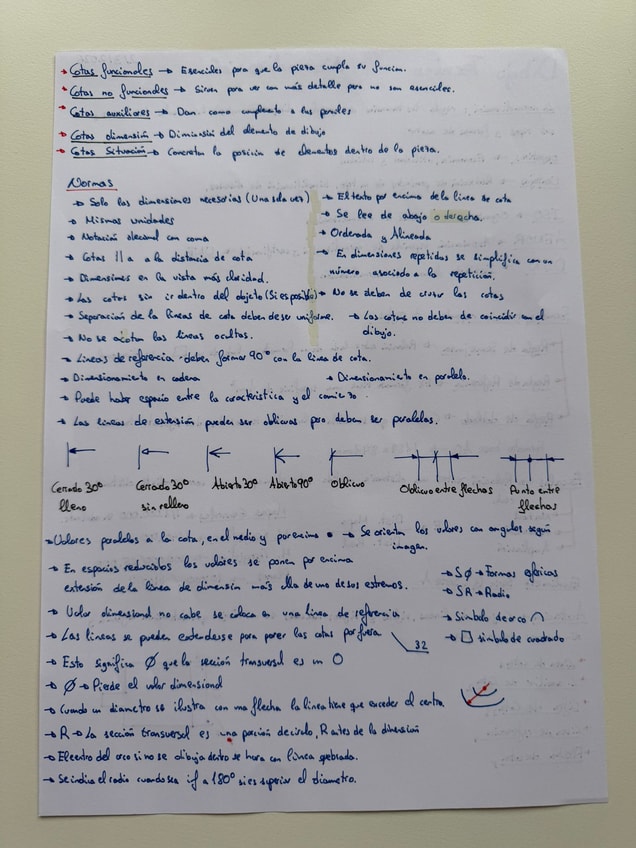 → Cotas funcionales → Esenciales para que la pieza cumpla su funcion.
→ Cotas no funcionales → Sirven para ver con más detalle pero no son esenciales.
→ Cotas auxiliares → Dan como complemento a las
→ Cotas dimensión → Dimensión del elemento de dibujo
→ Cotas Situación → Concretan la posición de elementos dentro de la pieza.
Normas
→ Solo las dimensiones necesarias (Una sola vez)
→ Mismas unidades
→ Notación decimal con coma
→ Cotas || a a la distancia de cota
→ Dimensiones en la vista más claridad.
→ Las cotas sin ir dentro del objeto (Si es posible)
→ Separación de la lineas de cota deben de ser uniforme.
→ No se acotan las lineas ocultas.
→ Lineas de referencia deben formar 90° con la linea de cota.
→ Dimensionamiento en cadena
→ Puede haber espacio entre la caracteristica y el comienzo
→ Las lineas de extensión pueden ser oblicuas pero deben ser paralelas.
→ El texto por encima de la linea de cota
→ Se lee de abajo o derecha.
→ Ordenada y Alineada
→ En dimensiones repetidas se simplifica con un
número asociado a la repetición.
→ No se deben de cruzar las cotas
→ Las cotas no deben de coincidir con el
dibujo.
→ Dimensionamiento en paralelo.
Cerrado 30° lleno
Cerrado 30° sin relleno
Abierto 30°
Abierto 90°
Oblicuo
Oblicuo entre flechas
Punto entre flechas
→ Valores paralelos a la cota, en el medio y por encima
→ Se orientan los valores con angulos según
imagen.
→ En espacios reducidos los valores se ponen por encima
extensión de la linea de dimensión más alla de uno de sus extremos.
→ Valor dimensional no cabe se coloca en una linea de referencia
→ Las lineas se pueden extenderse para poner las cotas por fuera
32
→ SØ → Formas esféricas
→ SR → Radio
→ Simbolo de arco ⌒
→ □ simbolo de cuadrado
→ Esto significa Ø que la sección transversal es un O
→ Ø → Pierde el valor dimensional
→ Cuando un diametro se ilustra con una flecha la linea tiene que exceder el centro.
→ R → La sección transversal es una porción de circulo, R antes de la dimensión
→ El centro del arco si no se dibuja dentro se hara con linea quebrada.
→ Se indica el radio cuando sea if a 180° si es superior el diametro.